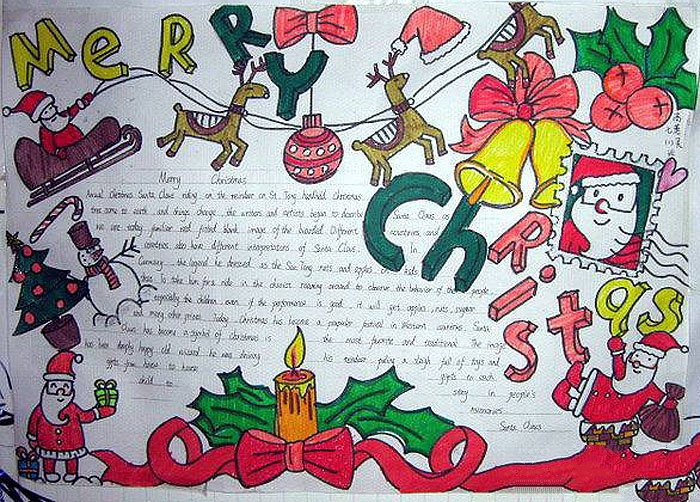 MeRRY
Christmas
Merry Christmas
Annual Christmas Santa Claus riding on the reindeer on St. Tong hundred Christmas
time came to with and drugs change, the writers and artists began to describe Santa Claus as
we are today familiar red, blank image of the bearded. Different countries and
countries also have different interpretations of Santa Claus. In
Germany, the legend he dressed as the Sao Tong nuts and apples on kids
than. To take two for a ride in the chariot roaming around to observe the behavior of people,
especially the children even, if the performance is good, it will get apples, nuts, sugar
and many other prizes. Today Christmas has become a popular festival in Western countries, Santa
Claus has become a symbol of christmas is the most favorite and traditional. The image
has been deeply happy old wizard he was driving his reindeer pulling a sleigh full of toys and
gifts from home to home gifts to each
child to stay in people's
memories.
Santa Claus